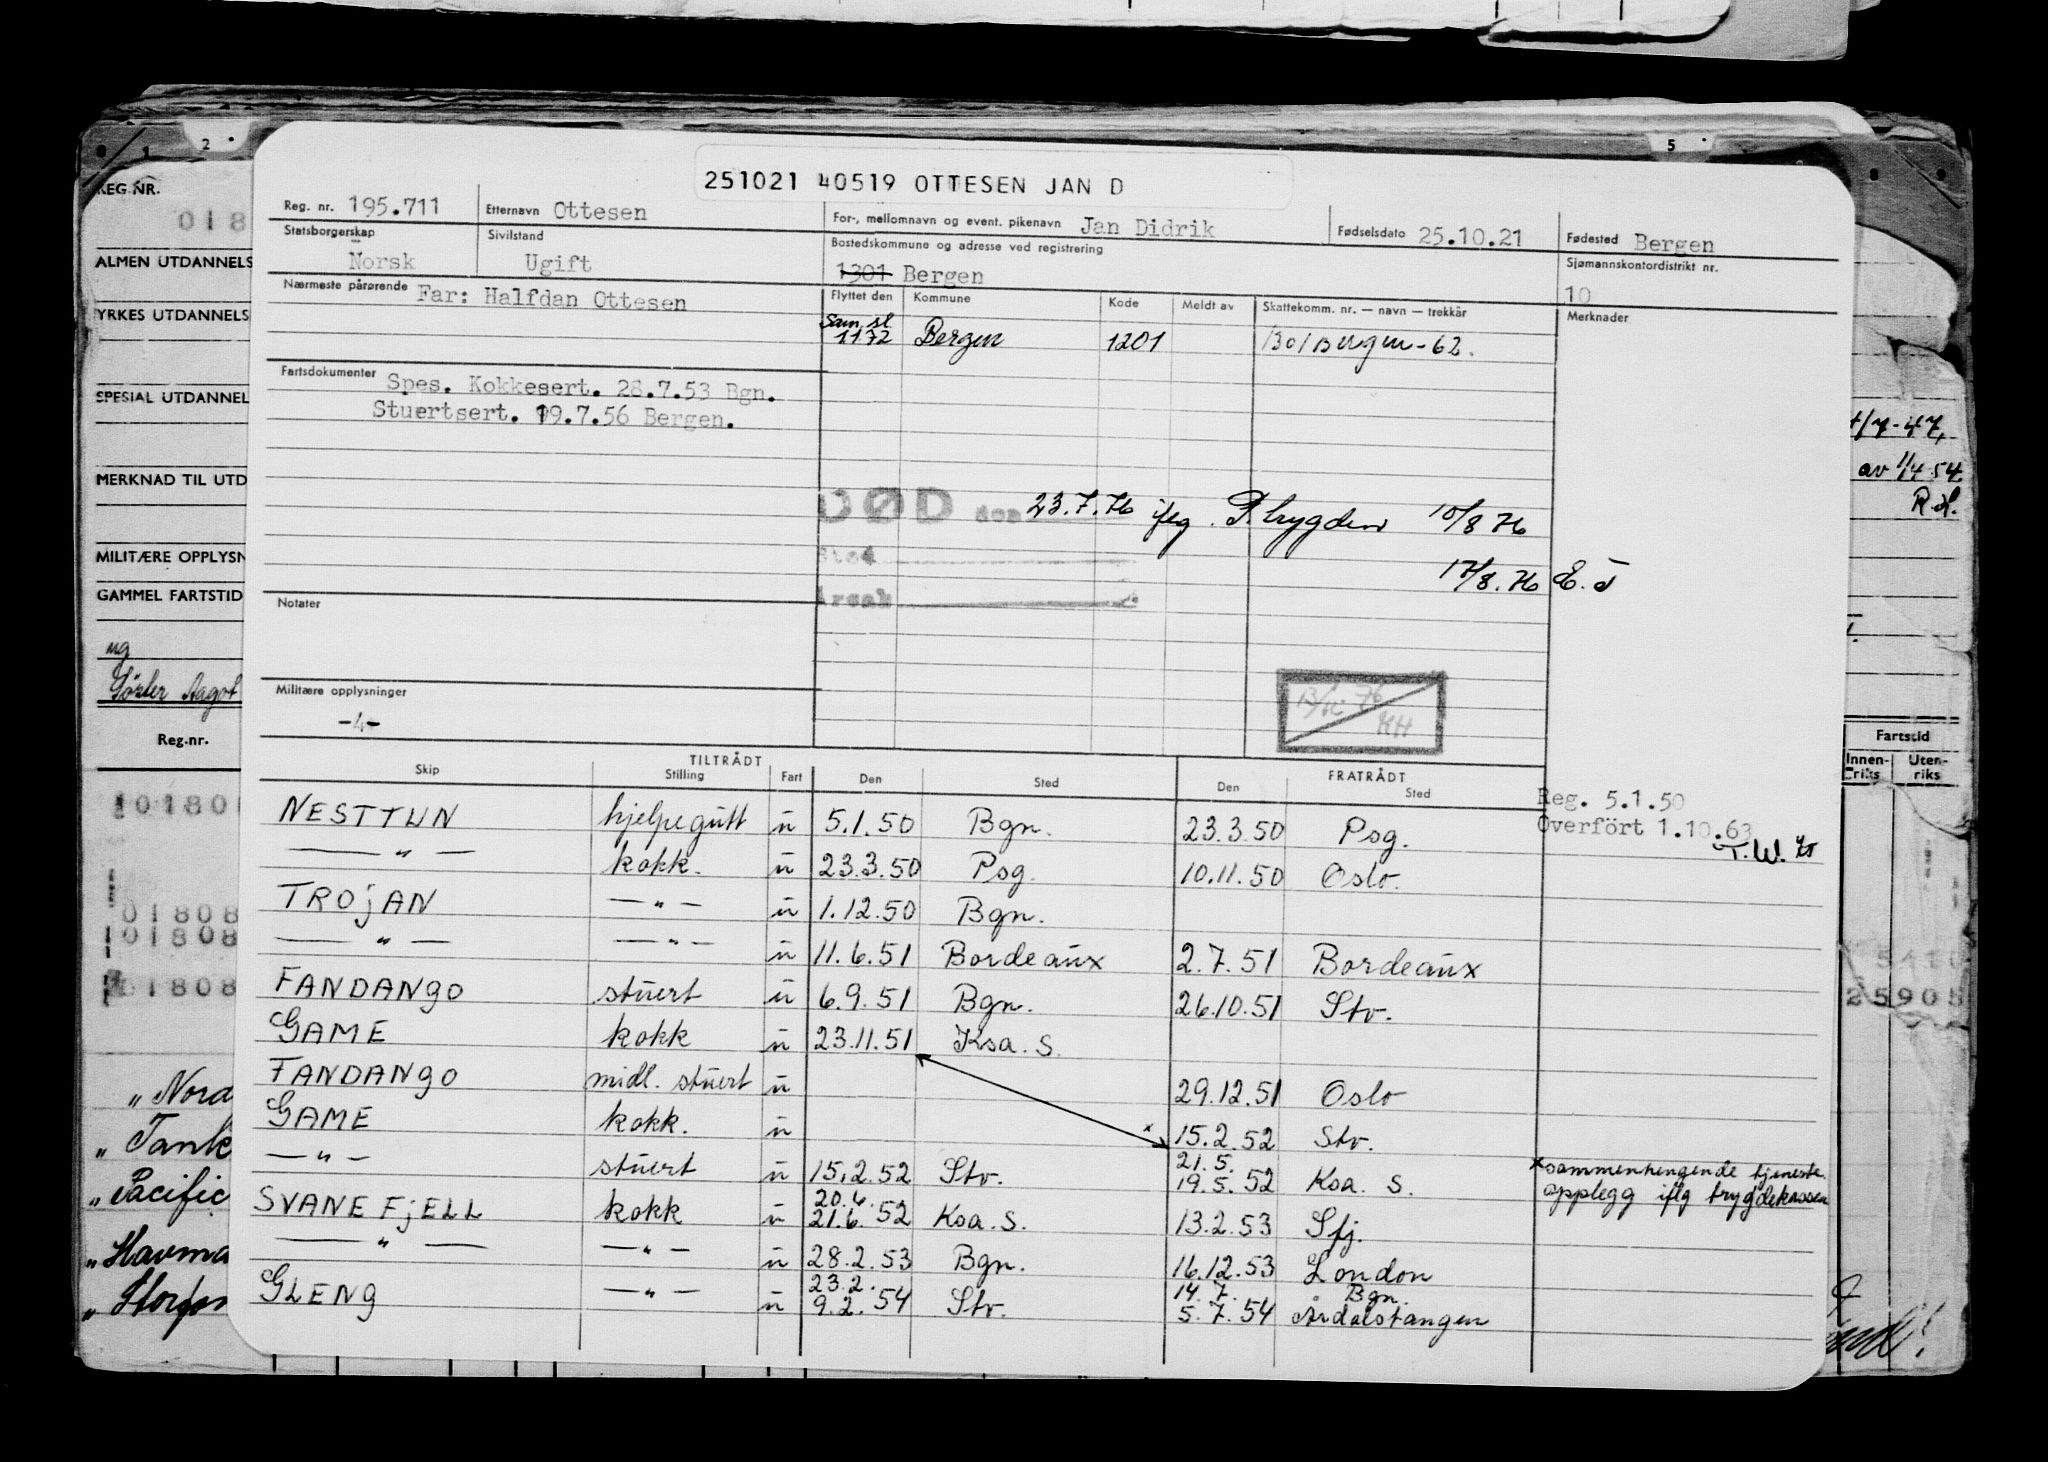 251021 40519 OTTESEN JAN D
Reg. nr. 195.711 Etternavn Ottesen For-, mellomnavn og event. pikenavn Jan Didrik Fødselsdato 25.10.21 Fødested Bergen
Statsborgerskap Norsk Sivilstand Ugift Bostedskommune og adresse ved registrering 1301 Bergen Sjømannskontordistrikt nr. 10
Nærmeste pårørende Far: Halfdan Ottesen
Flyttet den Kommune Kode Meldt av Skattekomm. nr. — navn — trekkår Merknader
Sam.sl. 1172 Bergen 1201 1301 Bergen - 62.
Fartsdokumenter Spes. Kokkesert. 28.7.53 Bgn.
Stuertsert. 19.7.56 Bergen.
DØD den 23.7.76 ifлg. P.trygden 10/8 76
Sted
17/8.76 E.T
Årsak
Notater
Militære opplysninger
-4-
13/12 76
KH
TILTRÅDT FRATRÅDT
Skip Stilling Fart Den Sted Den Sted
Reg. 5.1.50
Overført 1.10.63
T.W.
NESTTUN hjelpegutt u 5.1.50 Bgn. 23.3.50 Psg.
— " — kokk. u 23.3.50 Psg. 10.11.50 Oslo.
TROJAN — " — u 1.12.50 Bgn.
— " — — " — u 11.6.51 Bordeaux 2.7.51 Bordeaux
FANDANGO stuert u 6.9.51 Bgn. 26.10.51 Stv.
GAME kokk u 23.11.51 Ksa. S.
FANDANGO midl. stuert u 29.12.51 Oslo
GAME kokk. u x 15.2.52 Stv.
— " — stuert u 15.2.52 Stv. 21.5. 19.5.52 Ksa. S.
x sammenhengende tjeneste
opplegg iflg trygdekassen
SVANEFJELL kokk u 20.6. 21.6.52 Ksa. S. 13.2.53 Sfj.
— " — — " — u 28.2.53 Bgn. 16.12.53 London
GLENG — " — u 23.2. 9.2.54 Stv. 14.7. Bgn. 5.7.54 Årdalstangen
1 2 5
REG. NR.
018
ALMEN UTDANNELS
YRKES UTDANNELS
SPESIAL UTDANNEL
MERKNAD TIL UTD
MILITÆRE OPPLYSN
GAMMEL FARTSTID
ug
Aagot
Reg.-nr.
01808
01808
01808
„ Nord
„ Tank
„ Pacific
„ Havma
„
/7-47,
av 1/4 54
R.H.
Fartstid
Innen-riks Uten-riks
25905